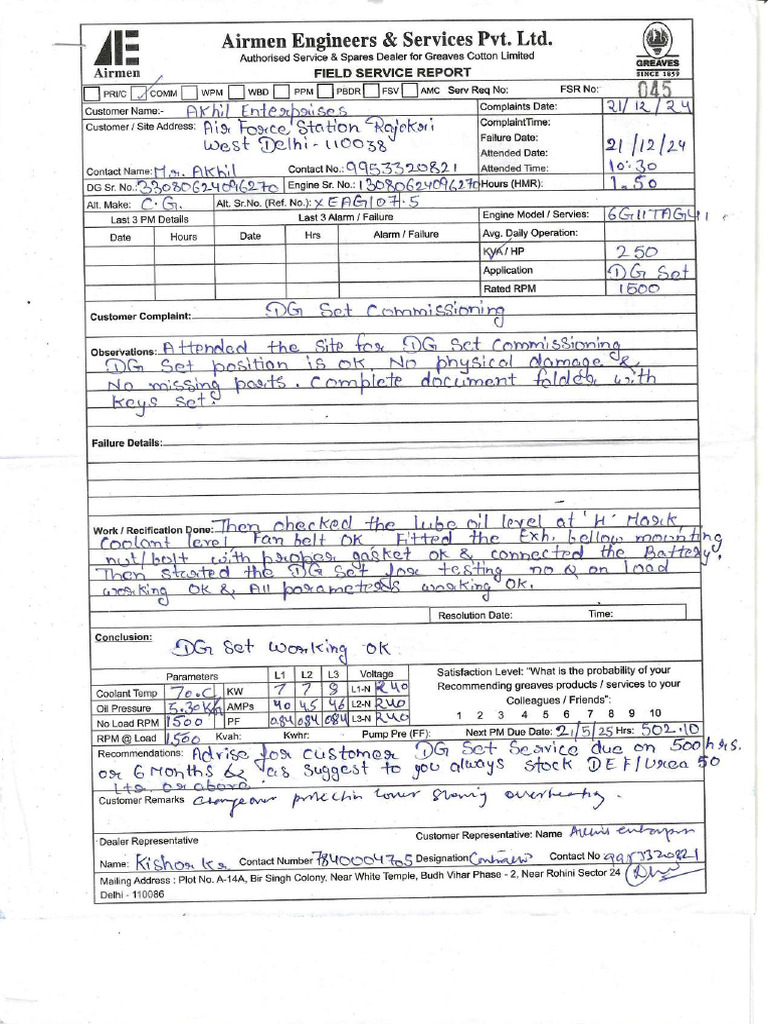 AE Airmen
Airmen Engineers & Services Pvt. Ltd.
Authorised Service & Spares Dealer for Greaves Cotton Limited
FIELD SERVICE REPORT
GREAVES
SINCE 1859
PRI/C COMM WPM WBD PPM PBDR FSV AMC Serv Req No: FSR No: 045
Customer Name:- Akhil Enterprises Complaints Date: 21/12/24
Customer / Site Address: Air Force Station Rajokri ComplaintTime:
West Delhi - 110038 Failure Date: 21/12/24
Attended Date:
Contact Name: Mr. Akhil Contact No.: 9953320821 Attended Time: 10:30
DG Sr. No.: 33080624096270 Engine Sr. No.: 13080624096270 Hours (HMR): 1.50
Alt. Make: C.G. Alt. Sr.No. (Ref. No.): XEAG107.5
Last 3 PM Details Last 3 Alarm / Failure Engine Model / Servies: 6G11TAG411
Date Hours Date Hrs Alarm / Failure Avg. Daily Operation:
KVA / HP 250
Application DG Set
Rated RPM 1500
Customer Complaint: DG Set Commissioning
Observations: Attended the Site for DG Set Commissioning
DG Set position is ok. No physical damage &
No missing parts. Complete document folder with
keys set.
Failure Details:
Work / Recification Done: Then checked the lube oil level at 'H' Mark,
Coolant level Fan belt OK Fitted the Exh. bellow mounting
nut/bolt with proper gasket ok & connected the Battery.
Then started the DG Set for testing no & on load
working OK & All parameters working OK.
Resolution Date: Time:
Conclusion: DG Set Working OK
Parameters L1 L2 L3 Voltage
Coolant Temp 70.C KW 7 7 8 L1-N 240
Oil Pressure 5.30 AMPs 40 45 46 L2-N 240
No Load RPM 1500 PF 084 084 084 L3-N 240
RPM @ Load 1500 Kvah: Kwhr: Pump Pre (FF):
Satisfaction Level: "What is the probability of your
Recommending greaves products / services to your
Colleagues / Friends":
1 2 3 4 5 6 7 8 9 10
Next PM Due Date: 21/5/25 Hrs: 502.10
Recommendations: Advise for customer DG Set Service due on 500 hrs.
or 6 Months & as suggest to you always stock DEF/Urea 50
Ltr. or above.
Customer Remarks Changeover protection cover showing overheating.
Dealer Representative Customer Representative: Name
Name: Kishor Kr Contact Number 7840004705 Designation Contact No 9953320821
Mailing Address : Plot No. A-14A, Bir Singh Colony, Near White Temple, Budh Vihar Phase - 2, Near Rohini Sector 24
Delhi - 110086